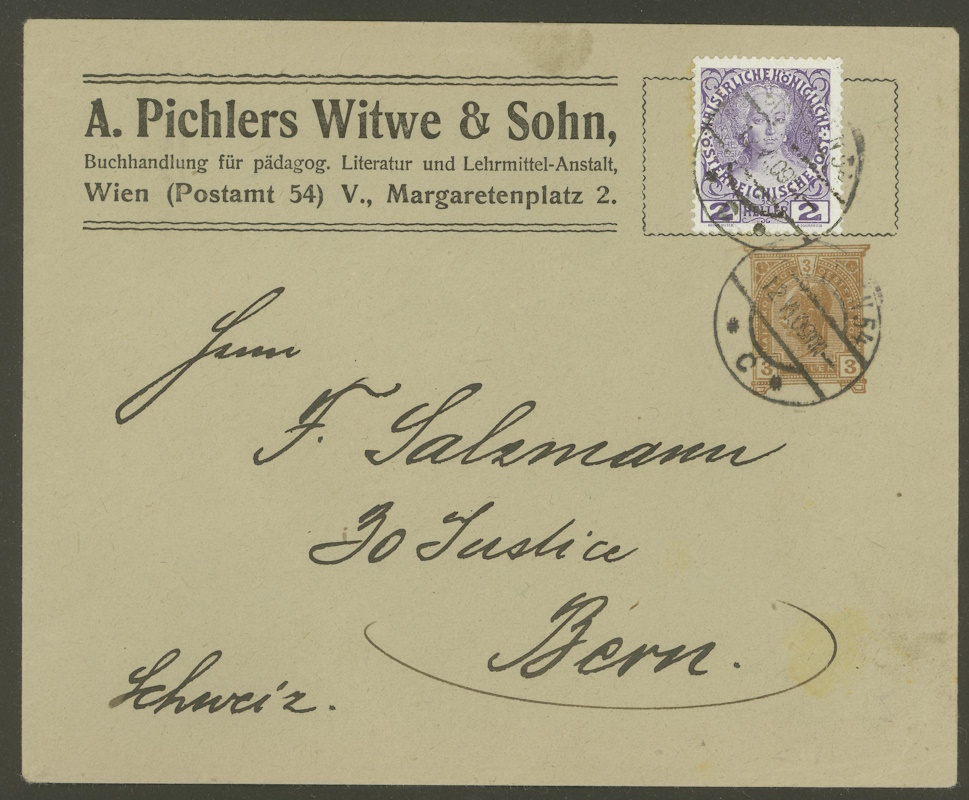 A. Pichlers Witwe & Sohn,
Buchhandlung für pädagog. Literatur und Lehrmittel-Anstalt,
Wien (Postamt 54) V., Margaretenplatz 2.
KAISERLICHE KÖNIGLICHE
ÖSTERREICHISCHE POST
2 HELLER 2
3
3 3
V 54
Herrn
F. Salzmann
30 Justice
Bern.
Schweiz.